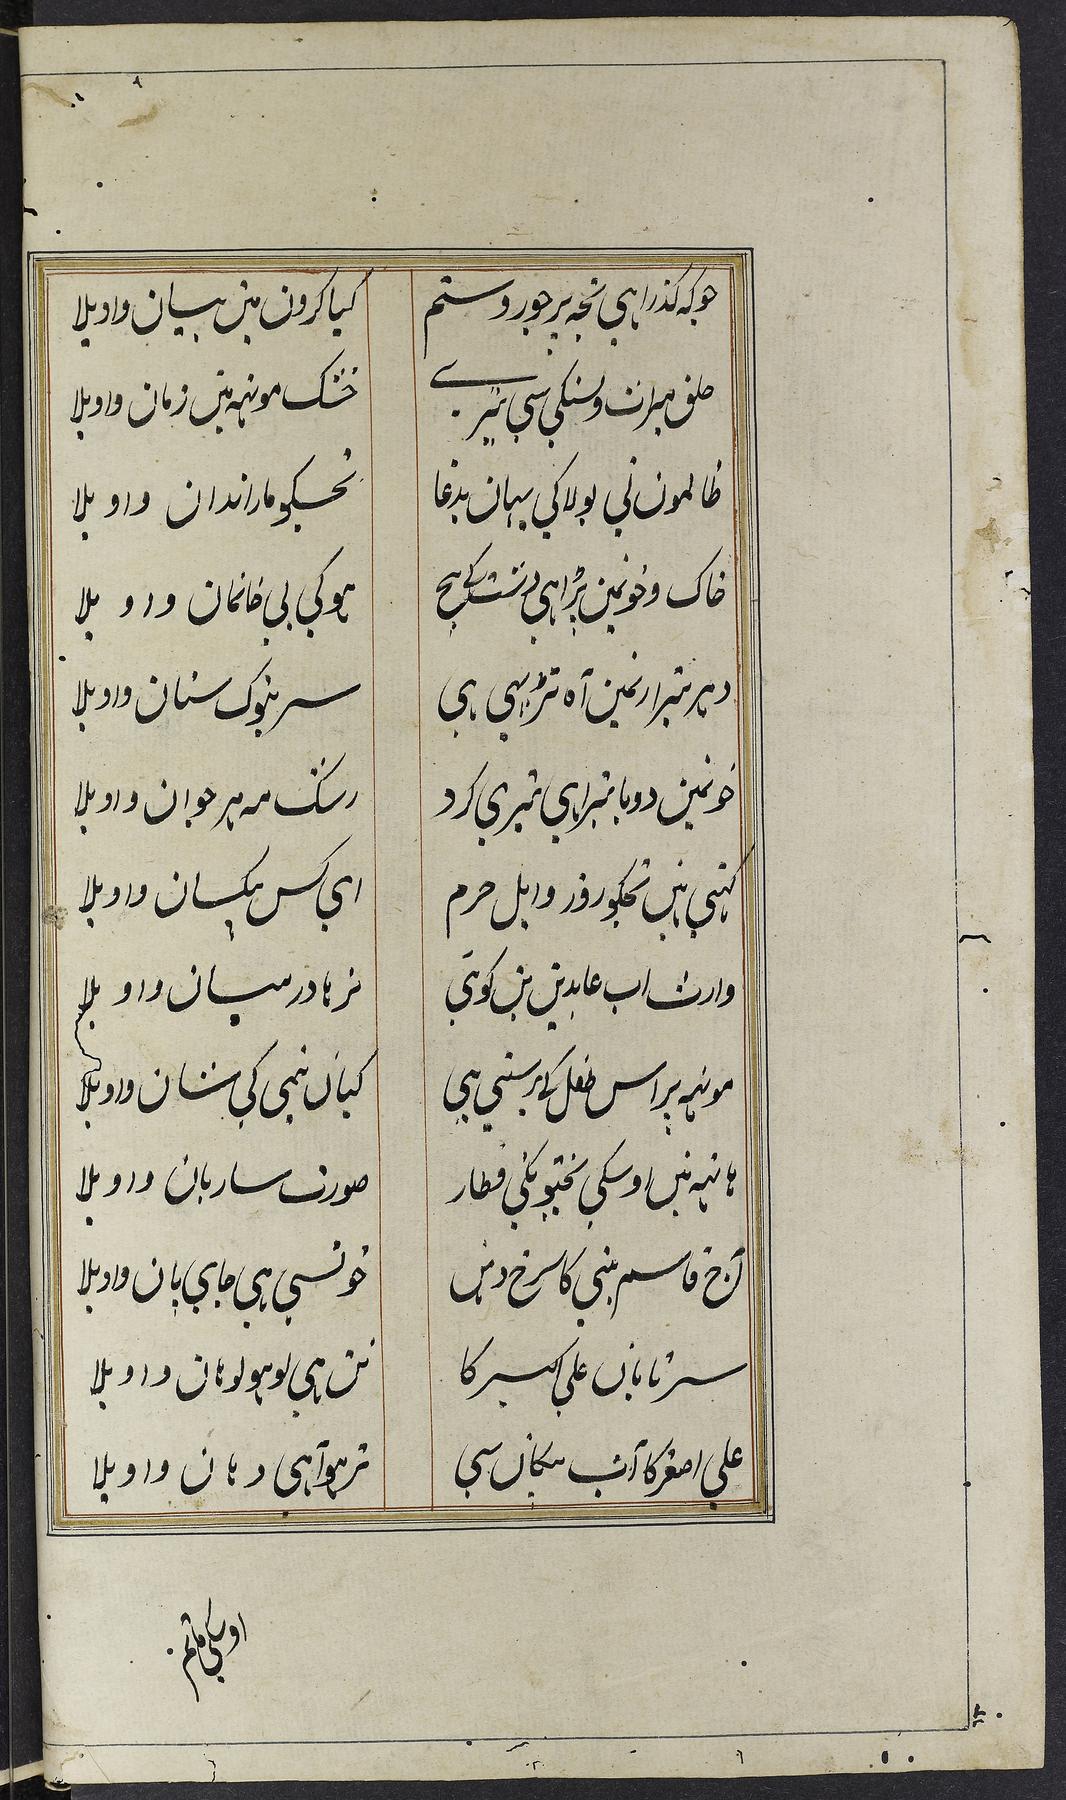 جو کہ کذرا ہی تجہ پر جور و ستم کیا کرون مین بیان واویلا
حلق میرا تشنکی سی تیری خشک مونہہ مین زبان واویلا
ظالمون نی بولا کی یہان بدغا تجکو مارا ندان واویلا
خاک و خونمین پڑا ہی دشت کی بیچ ہوکی بی خانمان واویلا
دہر تیرا رنمین آہ تڑپہی ہی سر بنوک سنان واویلا
خونمین دوبا تیرا ہی تیری کرد رشک مہ ہر جوان واویلا
کہتی ہین تجکو رو رو اہل حرم ای کس بیکسان واویلا
وارث اب عابدین بن کوئی نرہا درمیان واویلا
مونہہ پر اس طفل کی برستی ہی کیان یتمی کی شان واویلا
ہاتہہ مین اوسکی بختیونکی قطار صورت ساربان واویلا
آج قاسم بنی کا سرخ دہن خونسی ہی جای پان واویلا
سر تا پان علی اکبر کا تن ہی لوہو لوہان واویلا
علی اصغر کا آب پیکان سی تر ہوآ ہی دہان واویلا
اوسکی ماتم